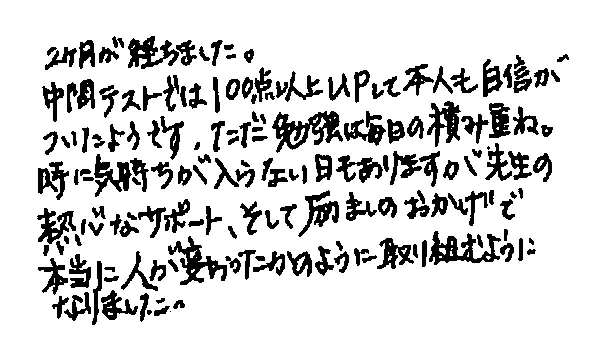 2ヶ月が経ちました。
中間テストでは100点以上UPして本人も自信が
ついたようです。ただ勉強は毎日の積み重ね。
時に気持ちが入らない日もありますが先生の
熱心なサポート、そして励ましのおかげで
本当に人が変わったかのように取り組むように
なりました。